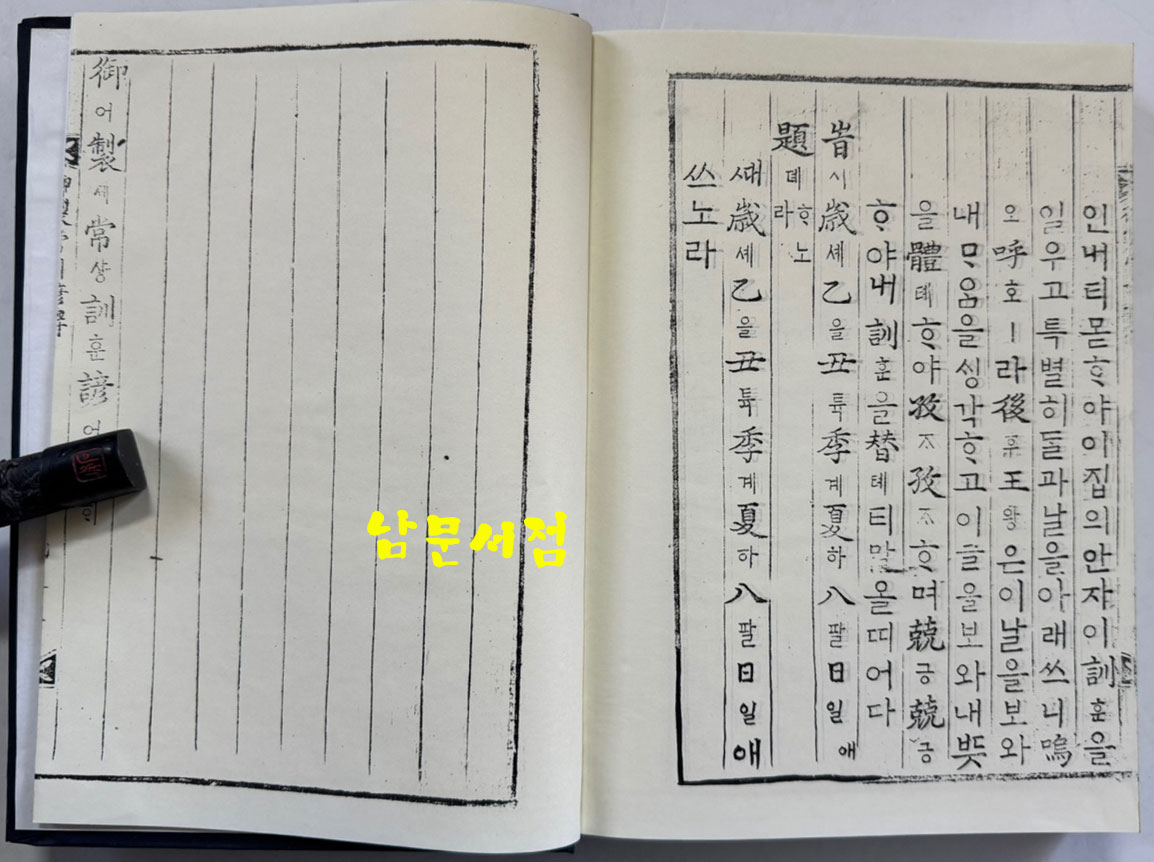 인내티몯ᄒᆞ야이집의안쟈이訓훈을
일우고특별히돌과날을아래쓰니嗚
오呼호ㅣ라後후王왕은이날을보와
내ᄆᆞᄋᆞᆷ을ᄉᆡᆼ각ᄒᆞ고이글을보와내ᄠᅳᆺ
을體톄ᄒᆞ야孜ᄌᆞ孜ᄌᆞᄒᆞ며兢긍兢긍
ᄒᆞ야내訓훈을替톄티말올띠어다
旹시歲셰乙을丑튝季계夏하八팔日일애
題뎨ᄒᆞ노라
ᄯᅢ歲셰乙을丑튝季계夏하八팔日일애
쓰노라
御어製졔常샹訓훈諺언
남문서점